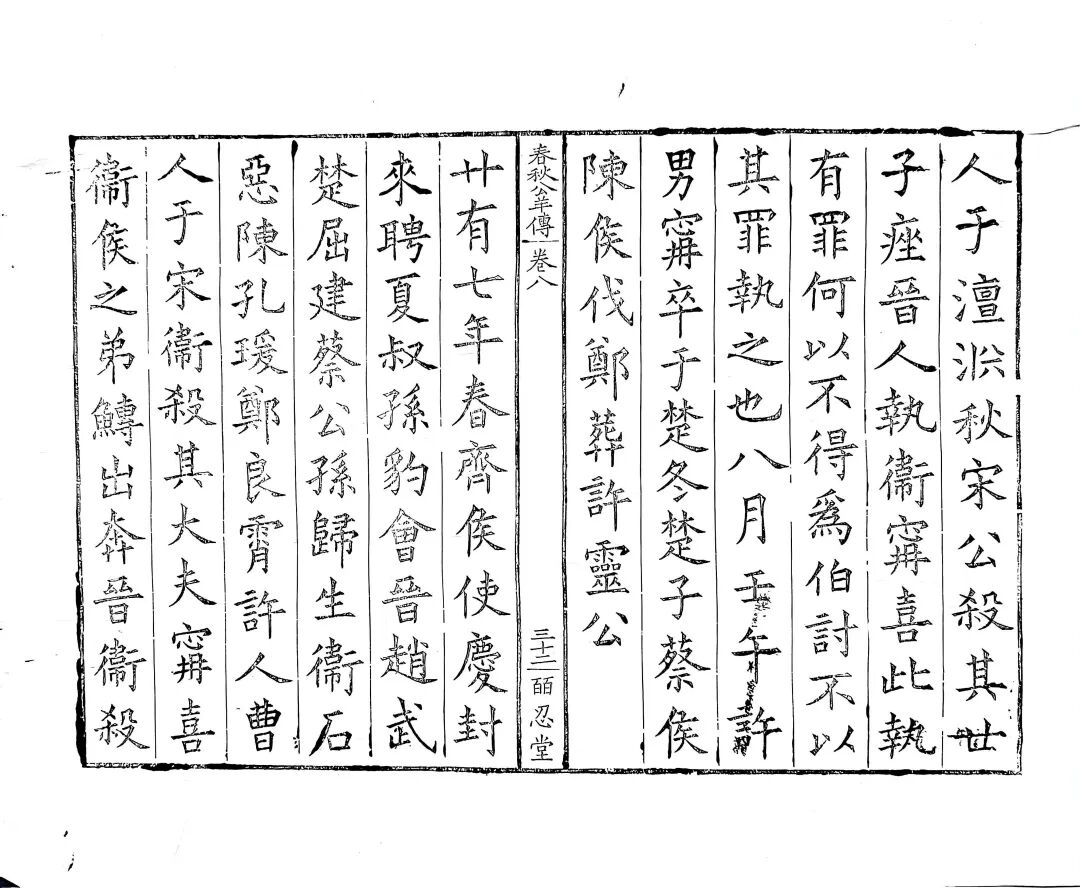 人于澶淵秋宋公殺其世
子痤晉人執衞甯喜此執
有罪何以不得爲伯討不以
其罪執之也八月壬午許
男甯卒于楚冬楚子蔡侯
陳侯伐鄭葬許靈公
春秋公羊傳 卷八
三十二 皕忍堂
廿有七年春齊侯使慶封
來聘夏叔孫豹會晉趙武
楚屈建蔡公孫歸生衞石
惡陳孔瑗鄭良霄許人曹
人于宋衞殺其大夫甯喜
衞侯之弟鱄出奔晉衞殺